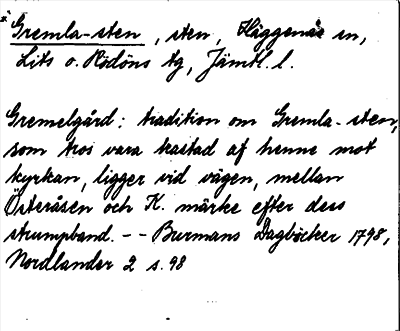 Gremla-sten, sten, Häggenås sn,
Lits o. Rödöns tg, Jämtl. l.
Gremelgård: tradition om Gremla-sten,
som tros vara kastad af henne mot
kyrkan, ligger vid vägen, mellan
Österåsen och K. märke efter dess
strumpband. -- Burmans Dagböcker 1798,
Nordlander 2 s. 98